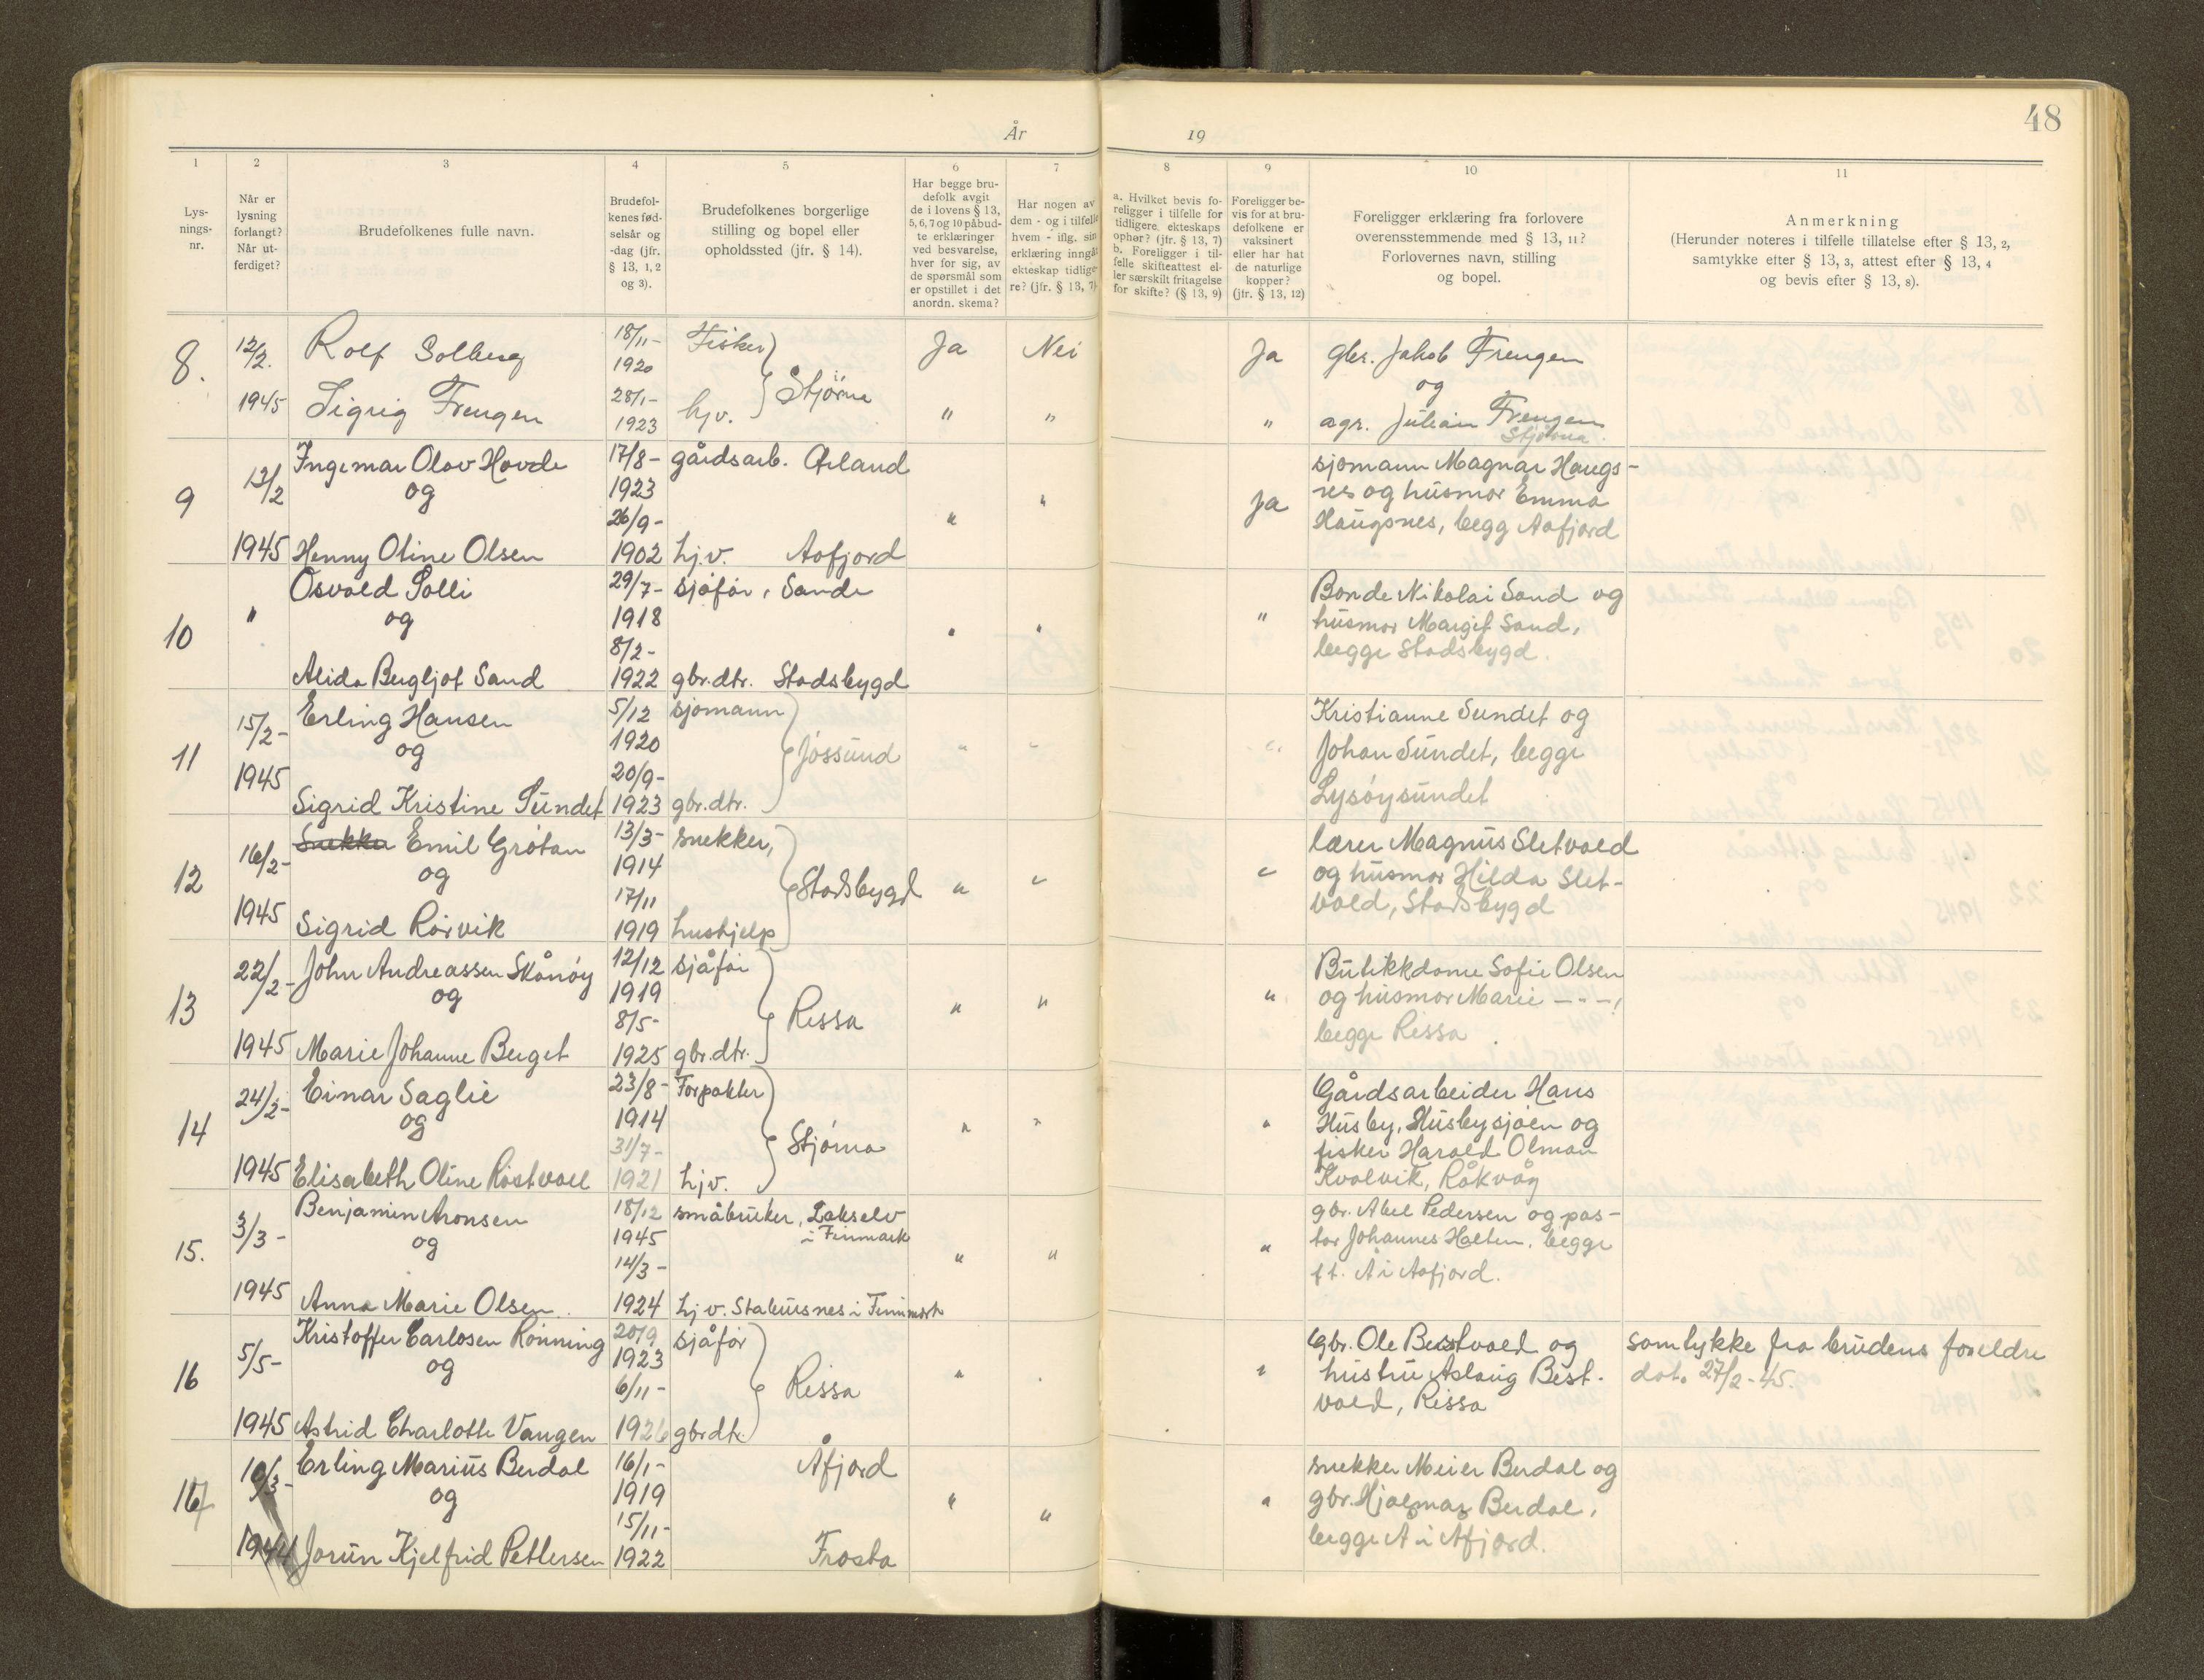 48
År 19
1 2 3 4 5 6 7 8 9 10 11
Lys-
nings-
nr.
Når er
lysning
forlangt?
Når ut-
ferdiget?
Brudefolkenes fulle navn.
Brudefol-
kenes fød-
selsår og
-dag (jfr.
§ 13, 1, 2
og 3).
Brudefolkenes borgerlige
stilling og bopel eller
opholdssted (jfr. § 14).
Har begge bru-
defolk avgit
de i lovens § 13,
5, 6, 7 og 10 påbud-
te erklæringer
ved besvarelse,
hver for sig, av
de spørsmål som
er opstillet i det
anordn. skema?
Har nogen av
dem - og i tilfelle
hvem - iflg. sin
erklæring inngåt
ekteskap tidlige-
re? (jfr. § 13, 7)
a. Hvilket bevis fo-
religger i tilfelle for
tidligere, ekteskaps
ophør? (jfr. § 13, 7)
b. Foreligger i til-
felle skifteattest el-
ler særskilt fritagelse
for skifte? (§ 13, 9)
Foreligger be-
vis for at bru-
defolkene er
vaksinert
eller har hat
de naturlige
kopper?
(jfr. § 13, 12)
Foreligger erklæring fra forlovere
overensstemmende med § 13, 11?
Forlovernes navn, stilling
og bopel.
Anmerkning
(Herunder noteres i tilfelle tillatelse efter § 13, 2,
samtykke efter § 13, 3, attest efter § 13, 4
og bevis efter § 13, 8).
8. 12/2. Rolf Solberg 18/11- 1920 Fisker Ja Nei Ja gbr. Jakob Frengen
Stjørna og
1945 Sigrig Frengen 28/1- 1923 hjv. " " " agr. Julian Frengen
Stjørna.
9 12/2 Ingemar Olav Hovde 17/8- gårdsarb. Ørland sjømann Magnar Haugs-
og 1923 " " Ja nes og husmor Emma
26/9- Haugsnes, begg Aafjord
1945 Henny Oline Olsen 1902 hj.v. Aafjord
10 " Osvald Solli 29/7- sjåfør, Sande Bonde Nikolai Sand og
og 1918 " " " husmor Margit Sand,
8/2- begge Stadsbygd.
Alida Bergljot Sand 1922 gbr.dtr. Stadsbygd
11 15/2- Erling Hansen 5/12 sjømann Kristianne Sundet og
og 1920 Jøssund " " " Johan Sundet, begge
1945 20/9- Lysøysundet
Sigrid Kristine Sundet 1923 gbr.dtr.
12 16/2- Snekker Emil Grøtan 13/3- snekker, lærer Magnus Sletvold
og 1914 Stadsbygd " " " og husmor Hilda Slet-
1945 17/11 vold, Stadsbygd
Sigrid Rørvik 1919 hushjelp
13 22/2- John Andreassen Skånøy 12/12 sjåfør Butikkdame Sofie Olsen
og 1919 Rissa " " " og husmor Marie - - -,
8/5- begge Rissa
1945 Marie Johanne Berget 1925 gbr.dtr.
14 24/2- Einar Saglie 23/8- Forpakter Gårdsarbeider Hans
og 1914 Stjørna " " " Husby, Husbysjøen og
31/7- fisker Harald Olman
1945 Elisabeth Oline Røstvoll 1921 hjv. Kvalvik, Råkvåg
15. 3/3- Benjamin Aronsen 18/12 småbruker, Lakselv gbr. Abel Pedersen og pas-
og 1945 i Finmark " " " tor Johannes Holten, begge
14/3- ft. Å i Aafjord.
1945 Anna Marie Olsen. 1924 hj v. Stabursnes i Finnmark
16 5/5- Kristoffer Carlosen Rønning 20/9 sjåfør Gbr. Ole Bestvold og samtykke fra brudens foreldre
og 1923 Rissa " " " hustru Aslaug Best- dat. 27/2-45.
6/11- vold, Rissa
1945 Astrid Charlotte Vangen 1926 gbrdtr.
17 10/3- Erling Marius Berdal 16/1- Åfjord snekker Meier Berdal og
og 1919 " " " gbr. Hjalmar Berdal,
15/11- begge Å i Åfjord.
1944 Jorun Kjelfrid Pettersen 1922 Frosta